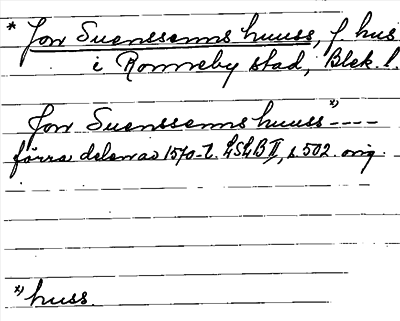 * Jon Suenssenns huuss, f. hus
i Ronneby stad, Blek. l.
Jon Suenssenns huuss x) ----
förra delen av 1570-t. LSLB II, s. 502 orig.
x) huss.